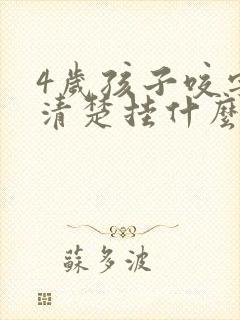 4歲孩子咬字
清楚挂什麼
蘇多波